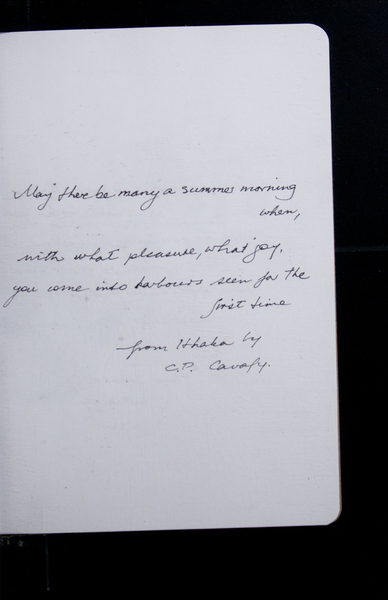 May there be many a summer morning
when,
with what pleasure, what joy,
you come into harbours seen for the
first time
from Ithaka by
C.P. Cavafy.